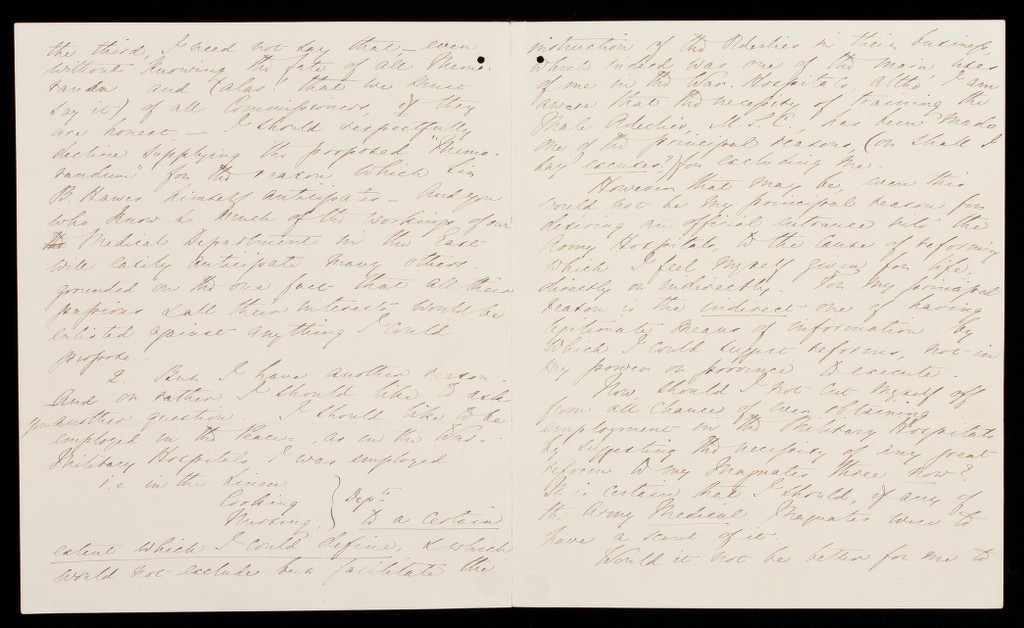 the third, I need not say that – even
without knowing the fate of all Memo-
randa and (alas! that we must
say it) of all Commissioners, if they
are honest – I should respectfully
decline supplying the proposed "Memo-
randum" for the reason which Sir
B. Hawes himself anticipates – And you
who know so much of the workings of our
the Medical Department in the East
will easily anticipate many others –
grounded on the one fact that all their
passions & all their interests would be
enlisted against anything I could
propose –
2. But I have another reason –
And or rather I should like to ask
you another question. I should like to be
employed in the Peace, as in the War –
Military Hospitals, I was employed
i.e. in the Linen
Cooking
Nursing, } Depts
to a certain
extent which I could define, & which
would not exclude but facilitate the
instruction of the Orderlies in their business,
which indeed was one of the main uses
of me in the War-Hospitals, altho' I am
aware that the necessity of training the
Male Orderlies, M.S.C., has been made
one of the principal reasons, (or shall I
say excuses?) for excluding me.
However that may be, even this
would not be my principal reason for
desiring an official entrance into the
Army Hospitals, to the cause of reforming
which I feel myself given for life,
directly or indirectly. For my principal
reason is the indirect one of having
legitimate means of information by
which I could suggest reforms, not in
my power or province to execute.
Now, should I not cut myself off
from all chance of ever obtaining
employment in the Military Hospitals
by suggesting the necessity of any great
reform to my Magnates three now?
It is certain that I should, if any of
the Army Medical Magnates were to
have a scent of it.
Would it not be better for me to